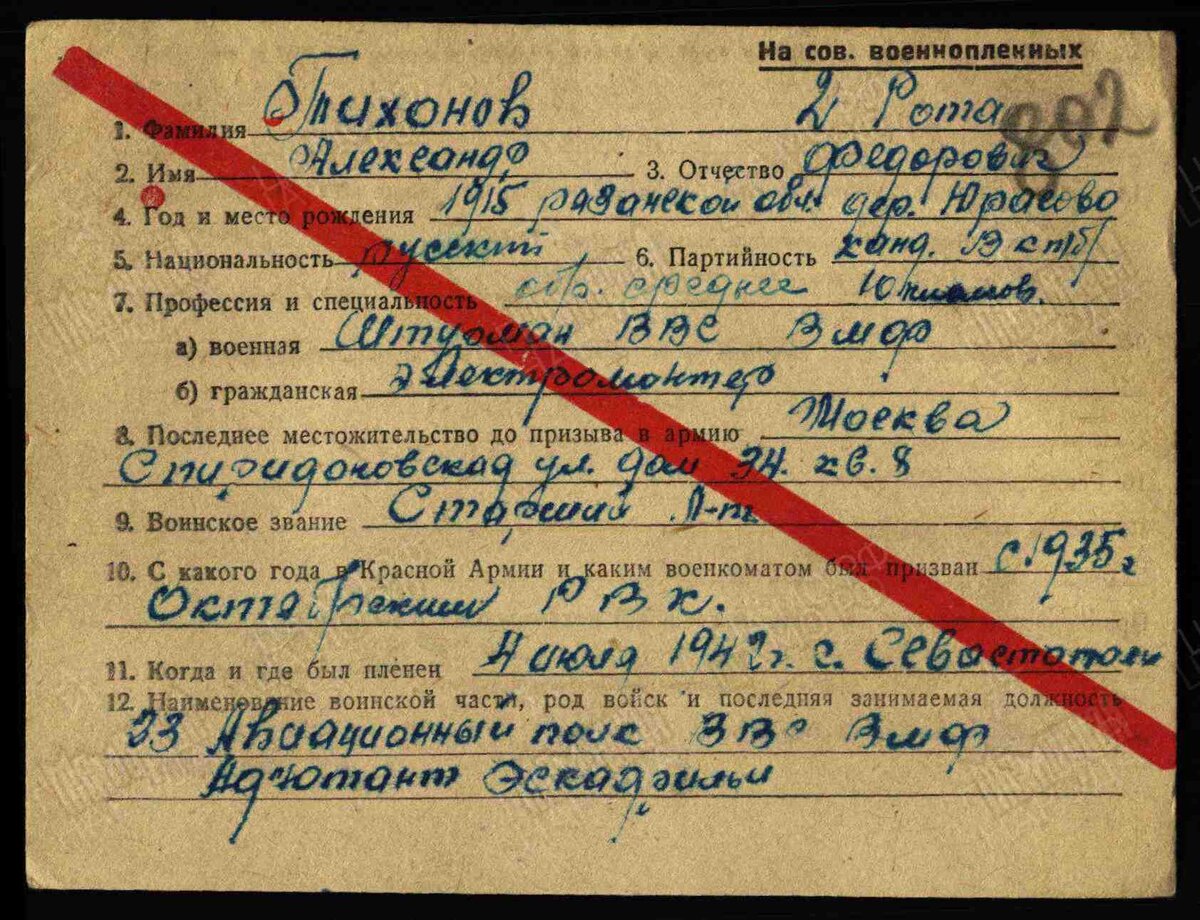 На сов. военнопленных
802
1. Фамилия Тихонов 2 Рота
2. Имя Александр 3. Отчество Федорович
4. Год и место рождения 1915 рязанской обл. дер. Юрасово
5. Национальность русский 6. Партийность канд. ВКПб)
7. Профессия и специальность обр. среднее 10
а) военная Штурман ВВС ВМФ
б) гражданская Электромонтер
8. Последнее местожительство до призыва в армию Москва
Спиридоновская ул. дом 34. кв. 8
9. Воинское звание Старший Л-т
10. С какого года в Красной Армии и каким военкоматом был призван с 1935 г
Октябрским Р В К.
11. Когда и где был пленен 4 июля 1942 г. с. Севастополь
12. Наименование воинской части, род войск и последняя занимаемая должность
23 Авиационный полк ВВС ВМФ
Адютант Эскадрильи